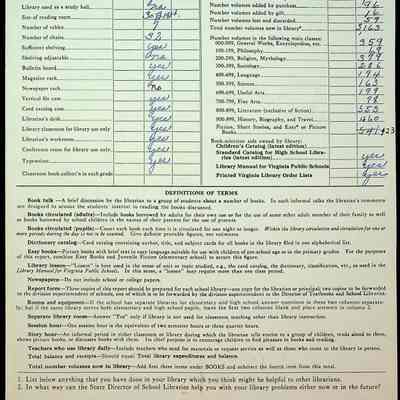 Library used as a study hall yes Number volumes purchased 176
Size of reading room 30x14 Number volumes added by gift 16
Number of tables 9 Number volumes lost and discarded 59
Number of chairs 52 Total number volumes now in library* 3163
Sufficient shelving yes Number volumes in the following main classes:
000-099, General Works, Encyclopedias, etc. 359
Shelving adjustable no 100-199, Philosophy
Bulletin board yes 200-299, Religion, Mythology
Magazine rack yes 300-399, Sociology
Newspaper rack no 400-499, Language 194
Vertical file case yes 500-599, Science 163
Card catalog case yes 600-699, Useful Arts 199
Librarian's desk yes 700-799, Fine Arts 98
Library classroom for library use only yes 800-899, Literature (exclusive of fiction) 353
Librarian's workroom yes 900-999, History, Biography, and Travel 460
Conference room for library use only yes Fiction, Short Stories, and Easy* or Picture Books
Typewriter yes Book-selection aids owned by library:
Children's Catalog (latest edition)
Standard Catalog for High School Libraries (latest edition) yes
Library Manual for Virginia Public Schools yes
Classroom book collection in each grade Printed Virginia Library Order Lists yes
DEFINITIONS OF TERMS
Book talk—A brief discussion by the librarian to a group of students about a number of books. In such informal talks the librarian's comments are designed to arouse the students' interest in reading the books discussed.
Books circulated (adults)—Include books borrowed by adults for their own use or for the use of some other adult member of their family as well as books borrowed by school children in the names of their parents for the use of the parents.
Books circulated (pupils)—Count each book each time it is circulated for one night or longer. Within the library circulation and circulation for one or more periods during the day is not to be counted. Give definite provable figures, not estimates.
Dictionary catalog—Card catalog containing author, title, and subject cards for all books in the library filed in one alphabetical list.
Easy books—Picture books with brief text in very large type suitable for use with children of pre-school age or in the primary grades. For the purposes of this report, combine Easy Books and Juvenile Fiction (elementary school) to secure this figure.
Library lesson—"Lesson" is here used in the sense of unit or topic studied, e.g., the card catalog, the dictionary, classification, etc., as used in the Library Manual for Virginia Public Schools. In this sense, a "lesson" may require more than one class period.
Newspapers—Do not include school or college papers.
Report form—Three copies of this report should be prepared for each school library—one copy for the librarian or principal; two copies to be forwarded to the division superintendent of schools, one of which is to be forwarded by the division superintendent to the Director of Textbooks and School Libraries.
Rooms and equipment—If the school has separate libraries for elementary and high school answer questions in these two columns separately;
Separate library room—Answer "Yes" only if library is not used for classroom teaching other than library instruction.
Session hour—One session hour is the equivalent of two semester hours or three quarter hours.
Story hour—An informal period in either classroom or library during which the librarian tells stories to a group of children, reads aloud to them, shows picture books, or discusses books with them. Its chief purpose is to encourage children to find pleasure in books and reading.
Teachers who use library daily—Include teachers who send for materials or request service as well as those who come to the library in person.
Total balance and receipts—Should equal Total library expenditures and balance.
Total number volumes now in library—Add first three items under BOOKS and subtract the fourth item from this total.
1. List below anything that you have done in your library which you think might be helpful to other librarians.
2. In what way can the State Director of School Libraries help you with your library problems either now or in the future?